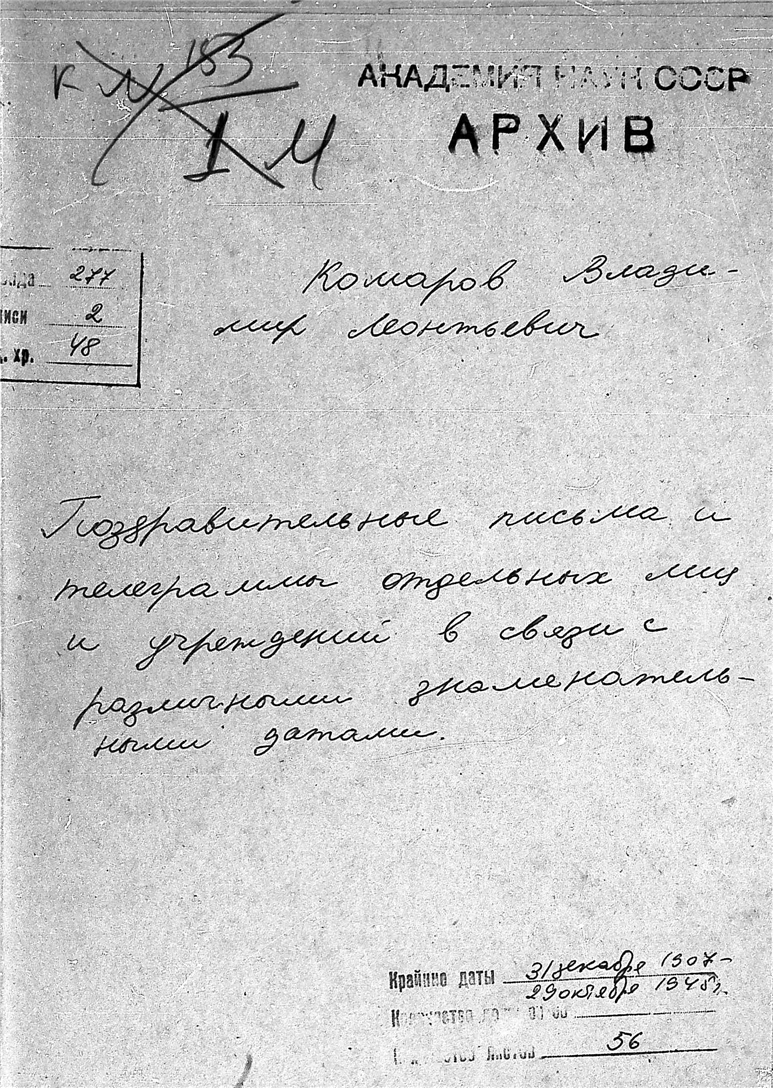 К М 183
1 М
АКАДЕМИЯ НАУК СССР
АРХИВ
277
2
хр. 48
Комаров Влади-
мир Леонтьевич
Поздравительные письма и
телеграммы отдельных лиц
и учреждений в связи с
различными знаменатель-
ными датами.
Крайние даты 31 декабря 1907-
29 октября 1945 г.
56